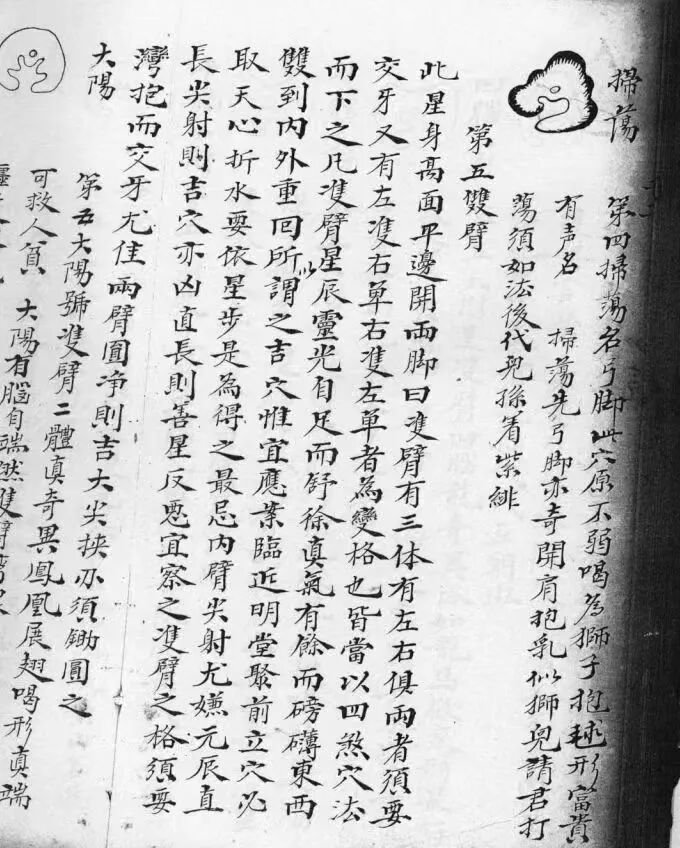 掃蕩
第四掃蕩名弓脚此穴原不弱喝為獅子抱毬形富貴
有声名　掃蕩先弓脚亦奇開肩抱乳似獅兒請君打
蕩須如法後代兒孫着紫緋
第五雙臂
此星身高面平邊開兩脚曰隻臂有三体有左右俱兩者須要
交牙又有左隻右单右隻左单者為變格也皆當以四煞穴法
而下之凡隻臂星辰靈光自足而舒徐真氣有餘而磅礴東西
雙到内外重回所以謂之吉穴惟宜應案臨近明堂聚前立穴必
取天心折水要依星步是為得之最忌内臂尖射尤嫌元辰直
長尖射則吉穴亦凶直長則善星反惡宜察之隻臂之格須要
灣抱而交牙尤佳兩臂圓净則吉大尖挾亦須鋤圓之
大陽
第五大陽號隻臂二體真奇異鳳凰展翅喝形真瑞
可救人貧　大陽有腦自端然雙臂